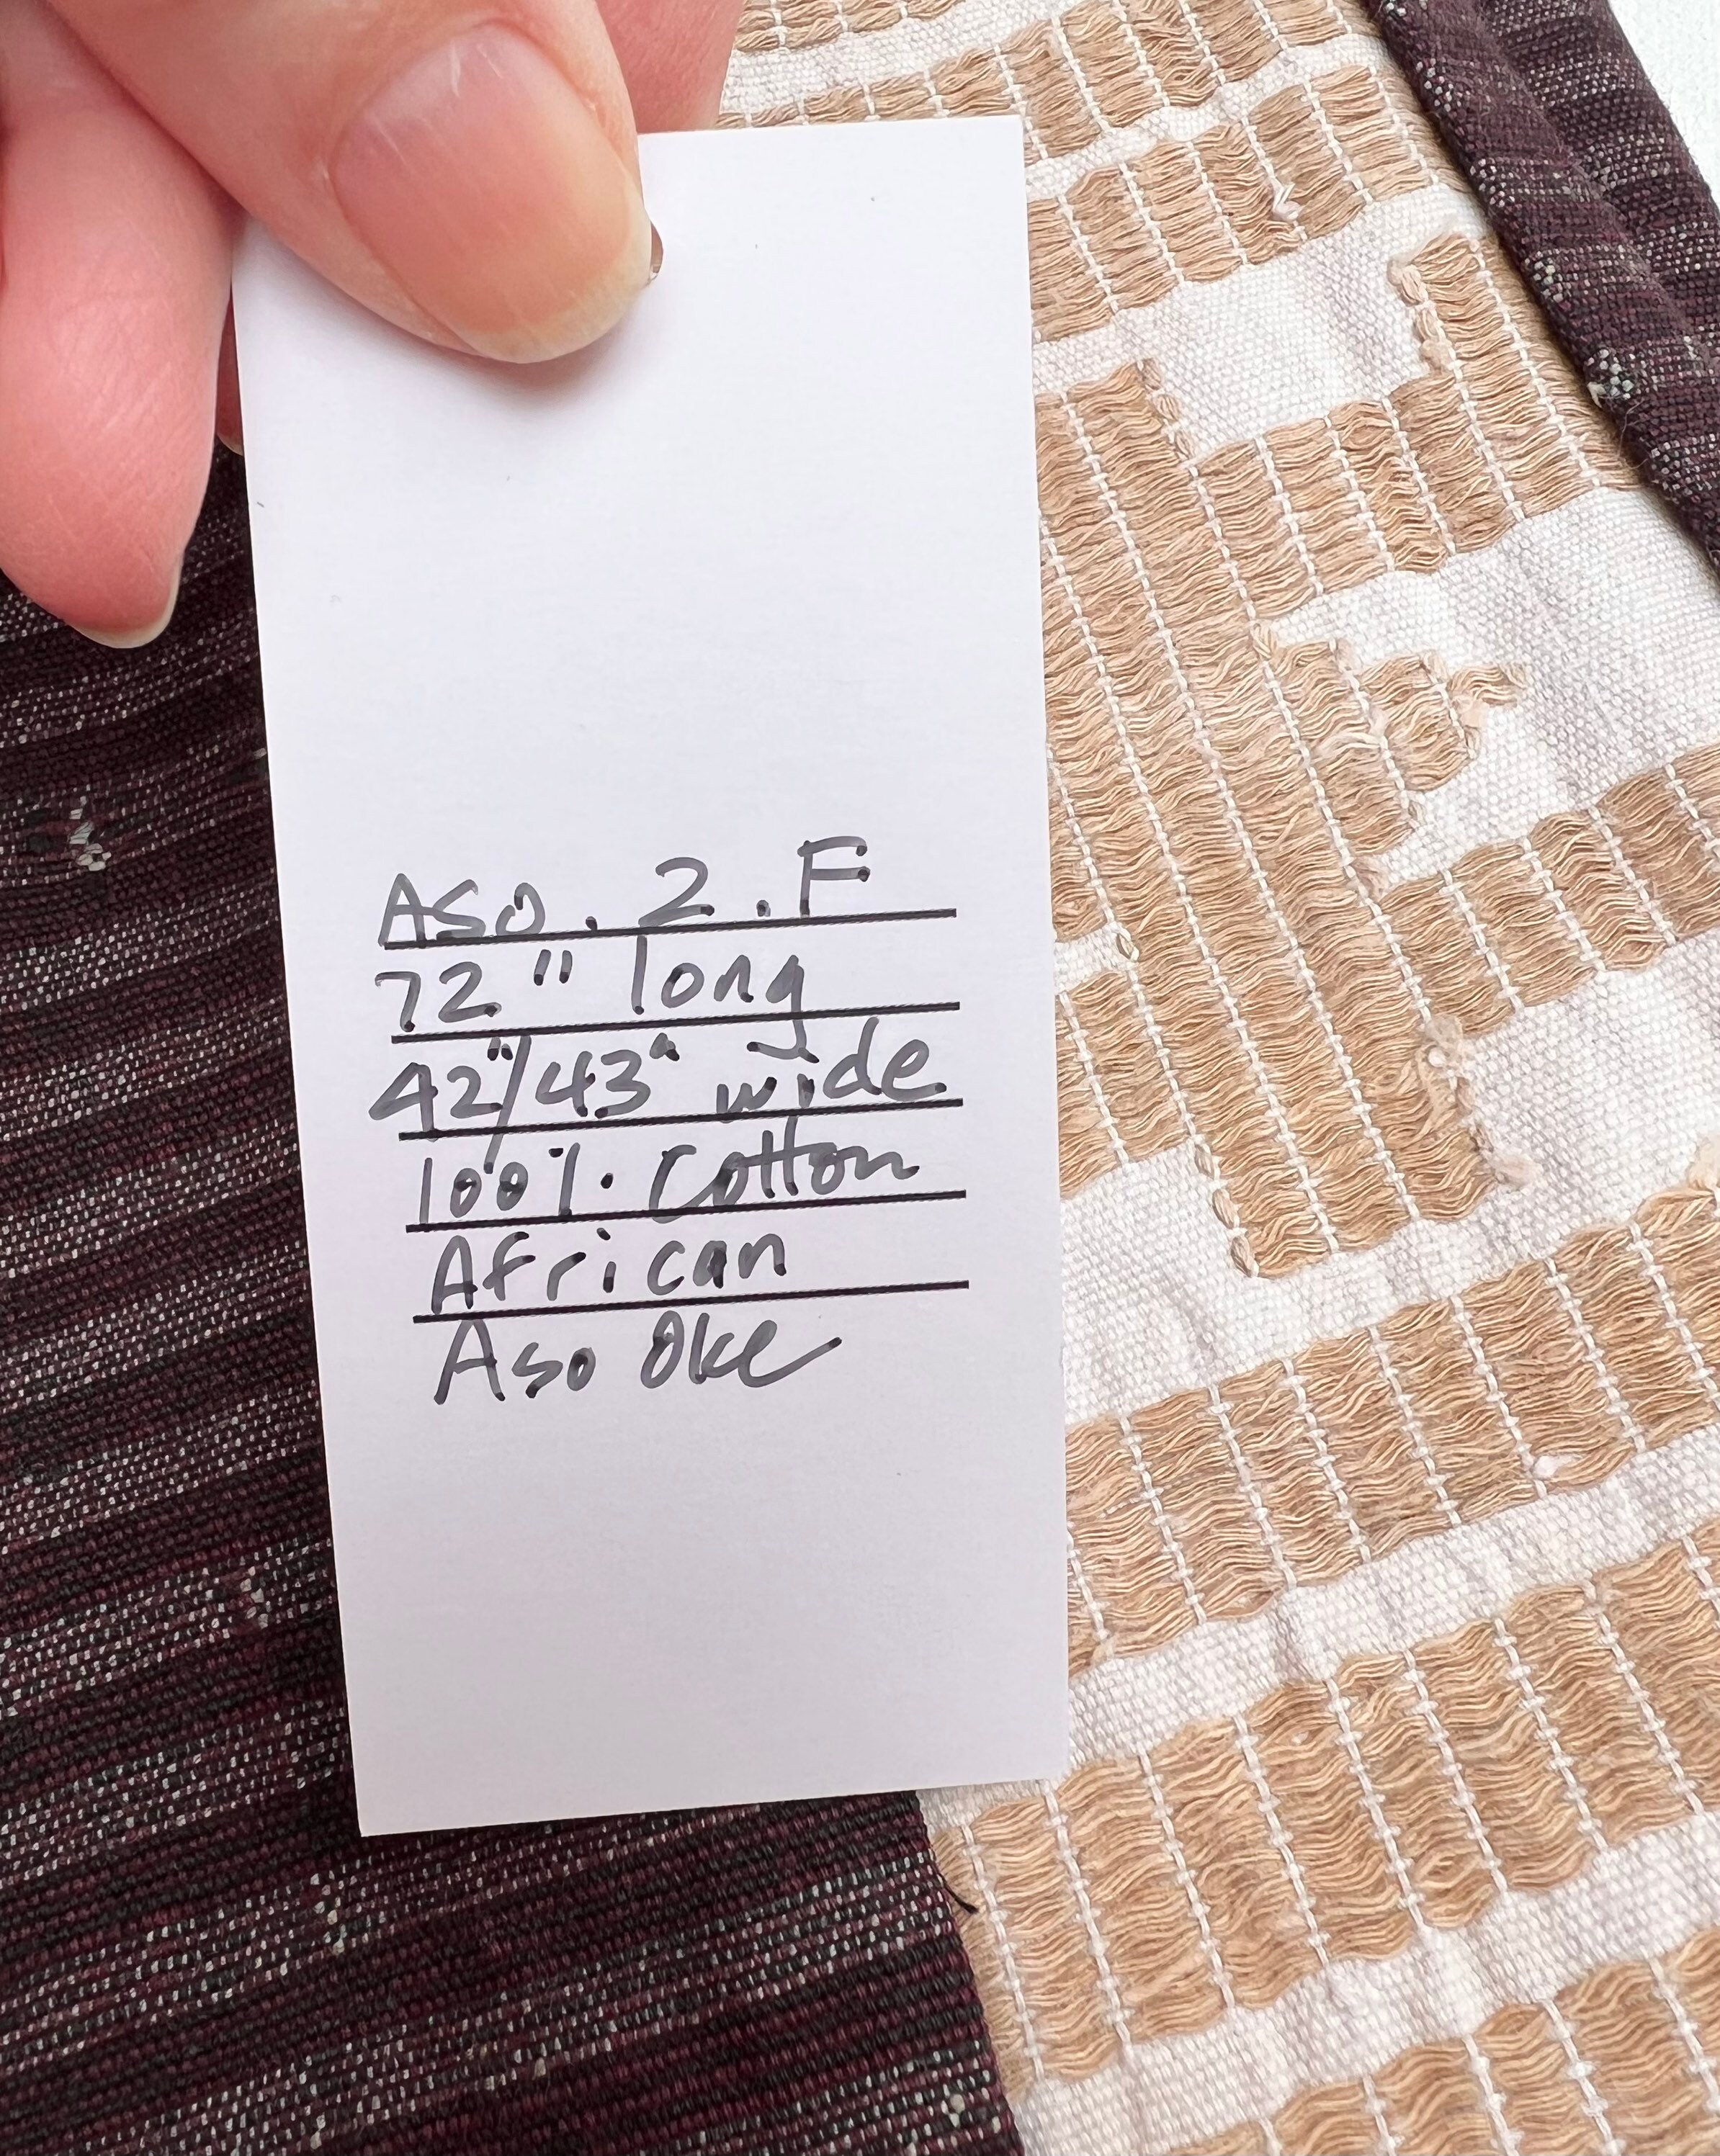 ASO. 2. F
72" long
42"/43" wide
100%. Cotton
African
Aso Oke